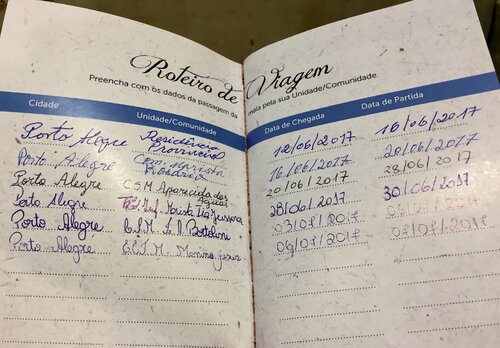 Roteiro de Viagem
Preencha com os dados da passagem da maia pela sua Unidade/Comunidade.
Cidade Unidade/Comunidade Data de Chegada Data de Partida
Porto Alegre Residência Provincial 12/06/2017 16/06/2017
Porto Alegre Com. Marista Rosário 16/06/2017 20/06/2017
Porto Alegre CSM Aparecida das Águas 20/06/2017 28/06/2017
Porto Alegre Marista 28/06/2017 30/06/2017
Porto Alegre 03/07/2017
Porto Alegre Menino Jesus 2017